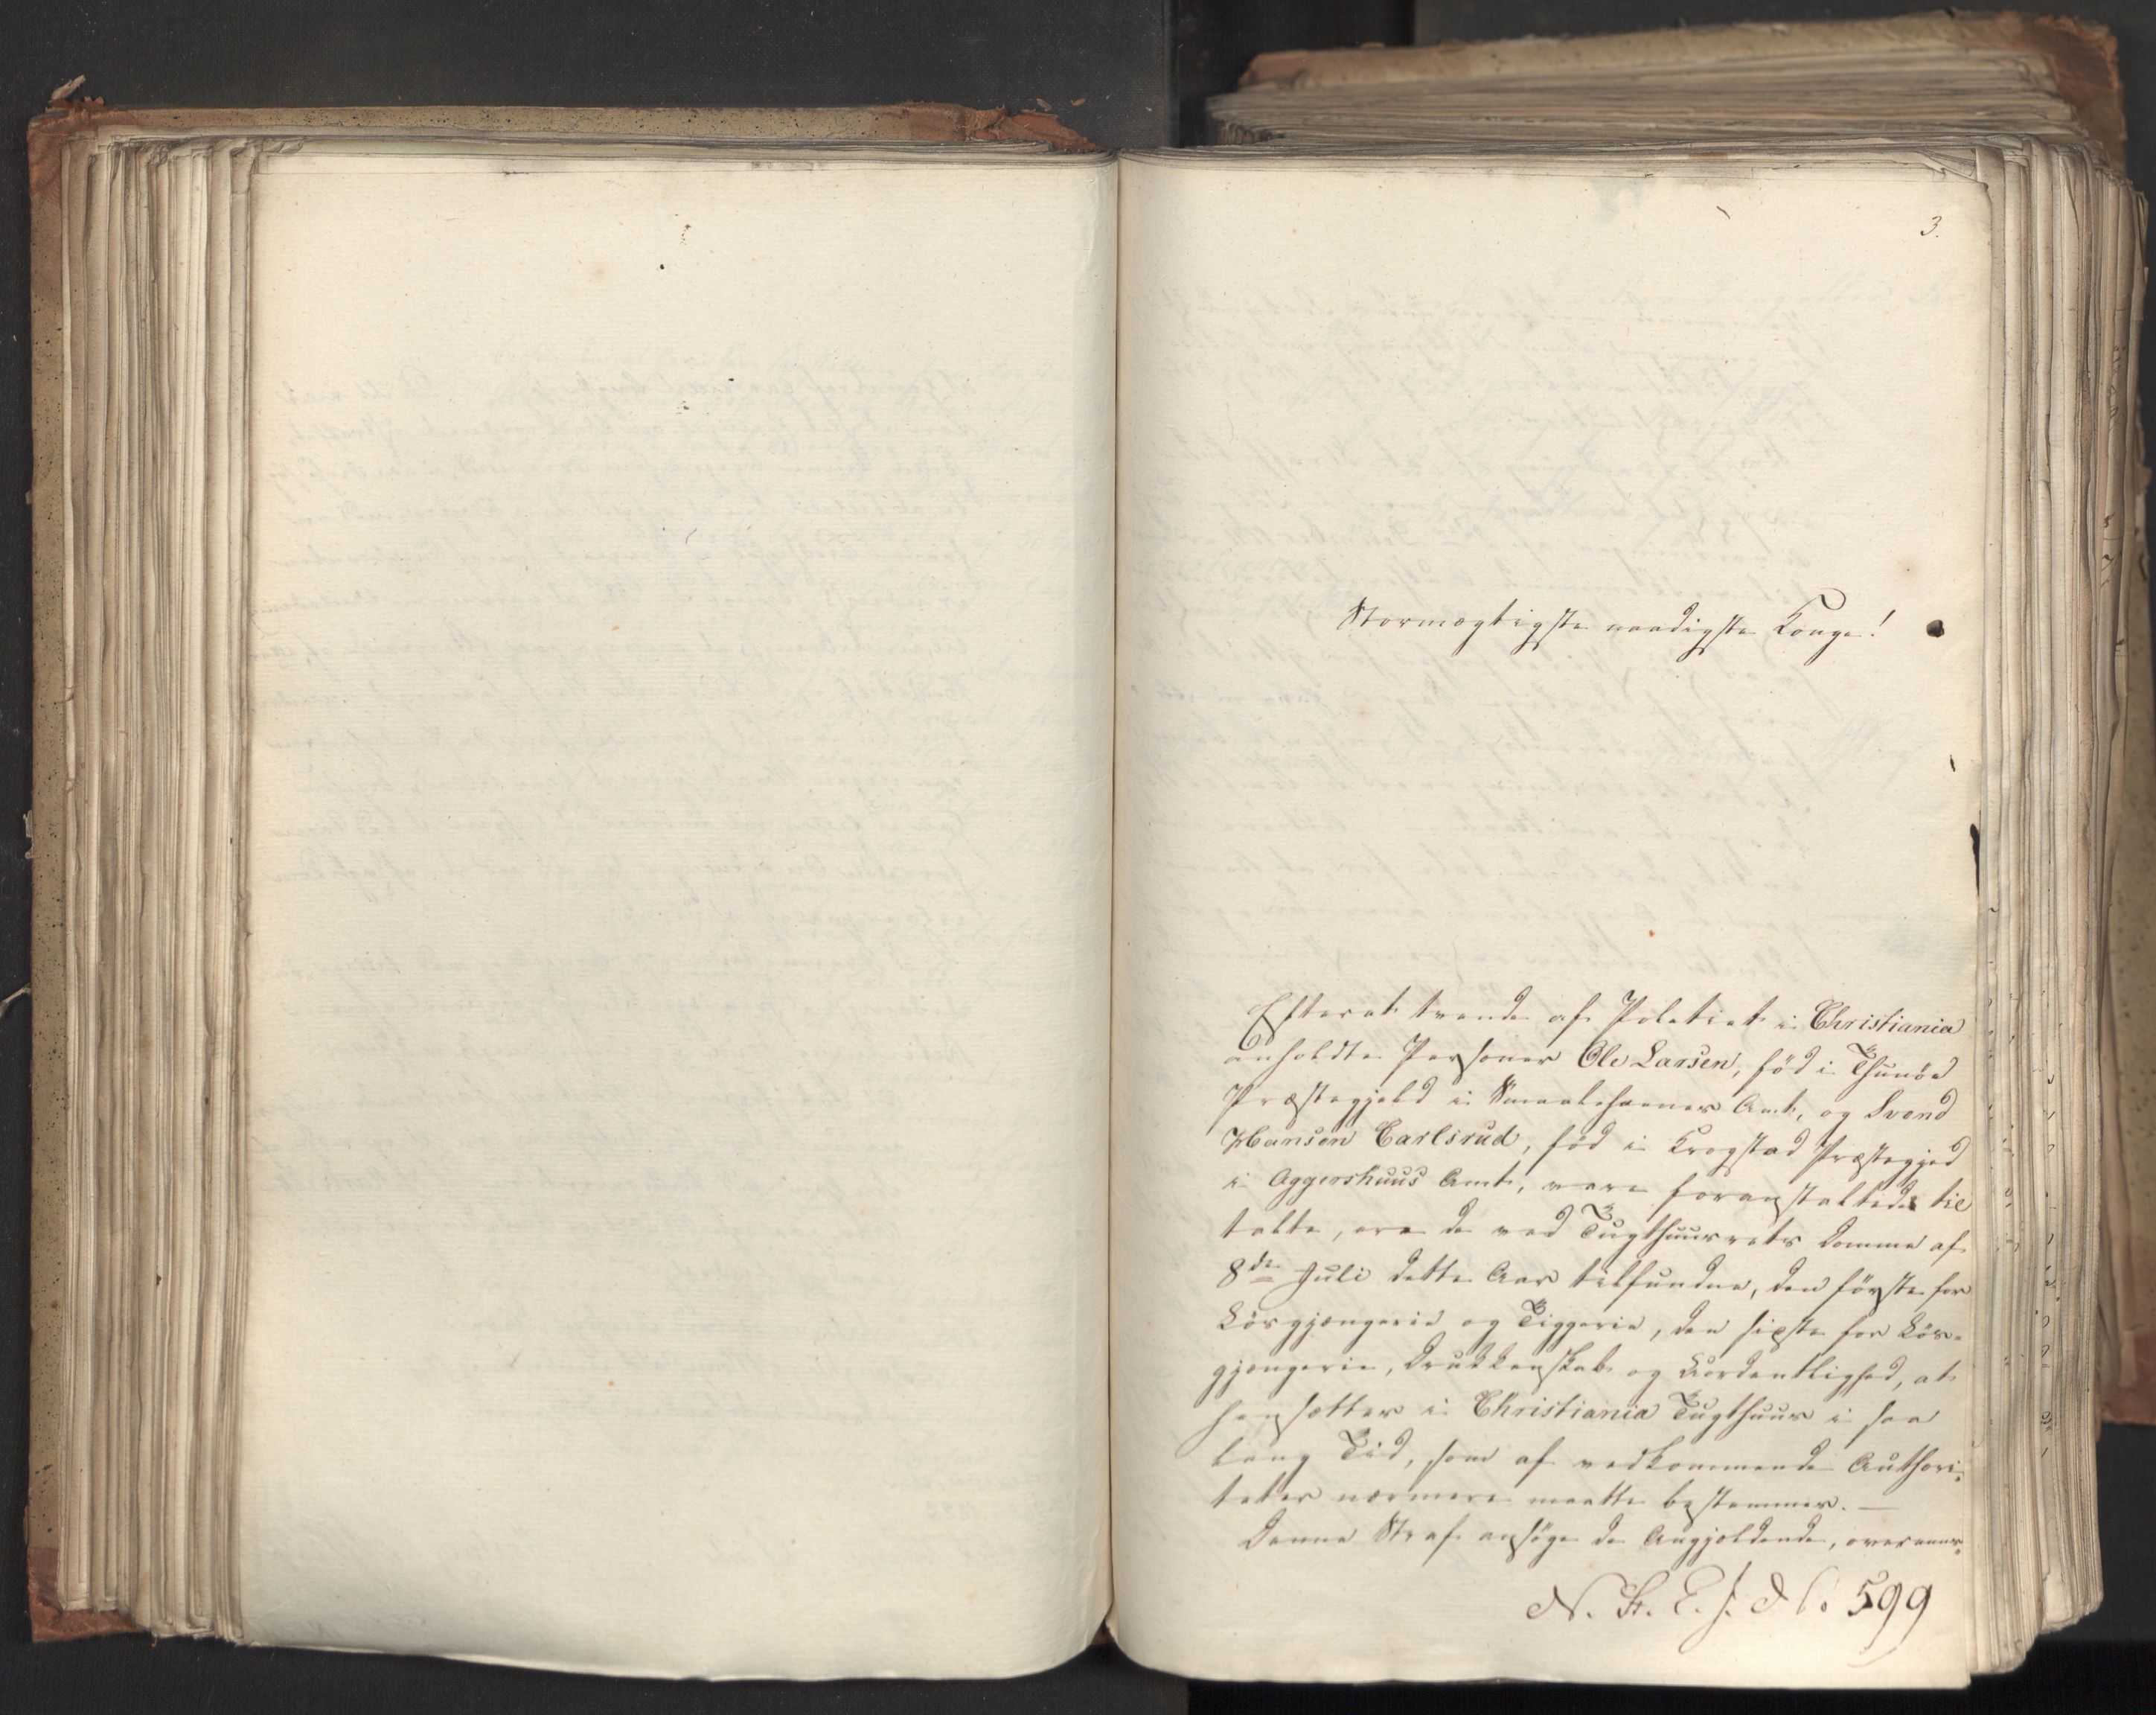 3.
Stormægtigste naadigste Konge!
Efterat tvende af Politiet i Christiania
anholdte Personer Ole Larsen, fød i Thunöe
Præstegjeld i Smaalehnenes Amt, og Svend
Hansen Carlsrud, fød i Krogstad Præstegjed
i Aggershuus Amt, vare foranstaltede til
talte, ere de ved Tugthuusrets Domme af
8de Juli dette Aar tilfundne, den første for
Løsgjængerie og Tiggerie, den sidste for Løs-
gjængerie, Drukkenskab og Uordentlighed, at
hensættes i Christiania Tugthuus i saa
lang Tid, som af vedkommende Authori-
teter nærmere maatte bestemmes. —
Denne Straf ansøge de Angjeldende, overeens-
N. St. E. J. No. 599